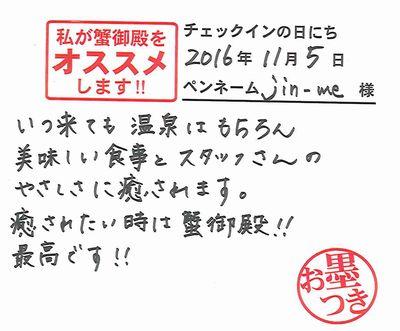 私が蟹御殿を
オススメ
します!!
チェックインの日にち
2016年11月5日
ペンネーム jin-me 様
いつ来ても温泉はもちろん
美味しい食事とスタッフさんの
やさしさに癒されます。
癒されたい時は蟹御殿!!
最高です!!
お墨つき